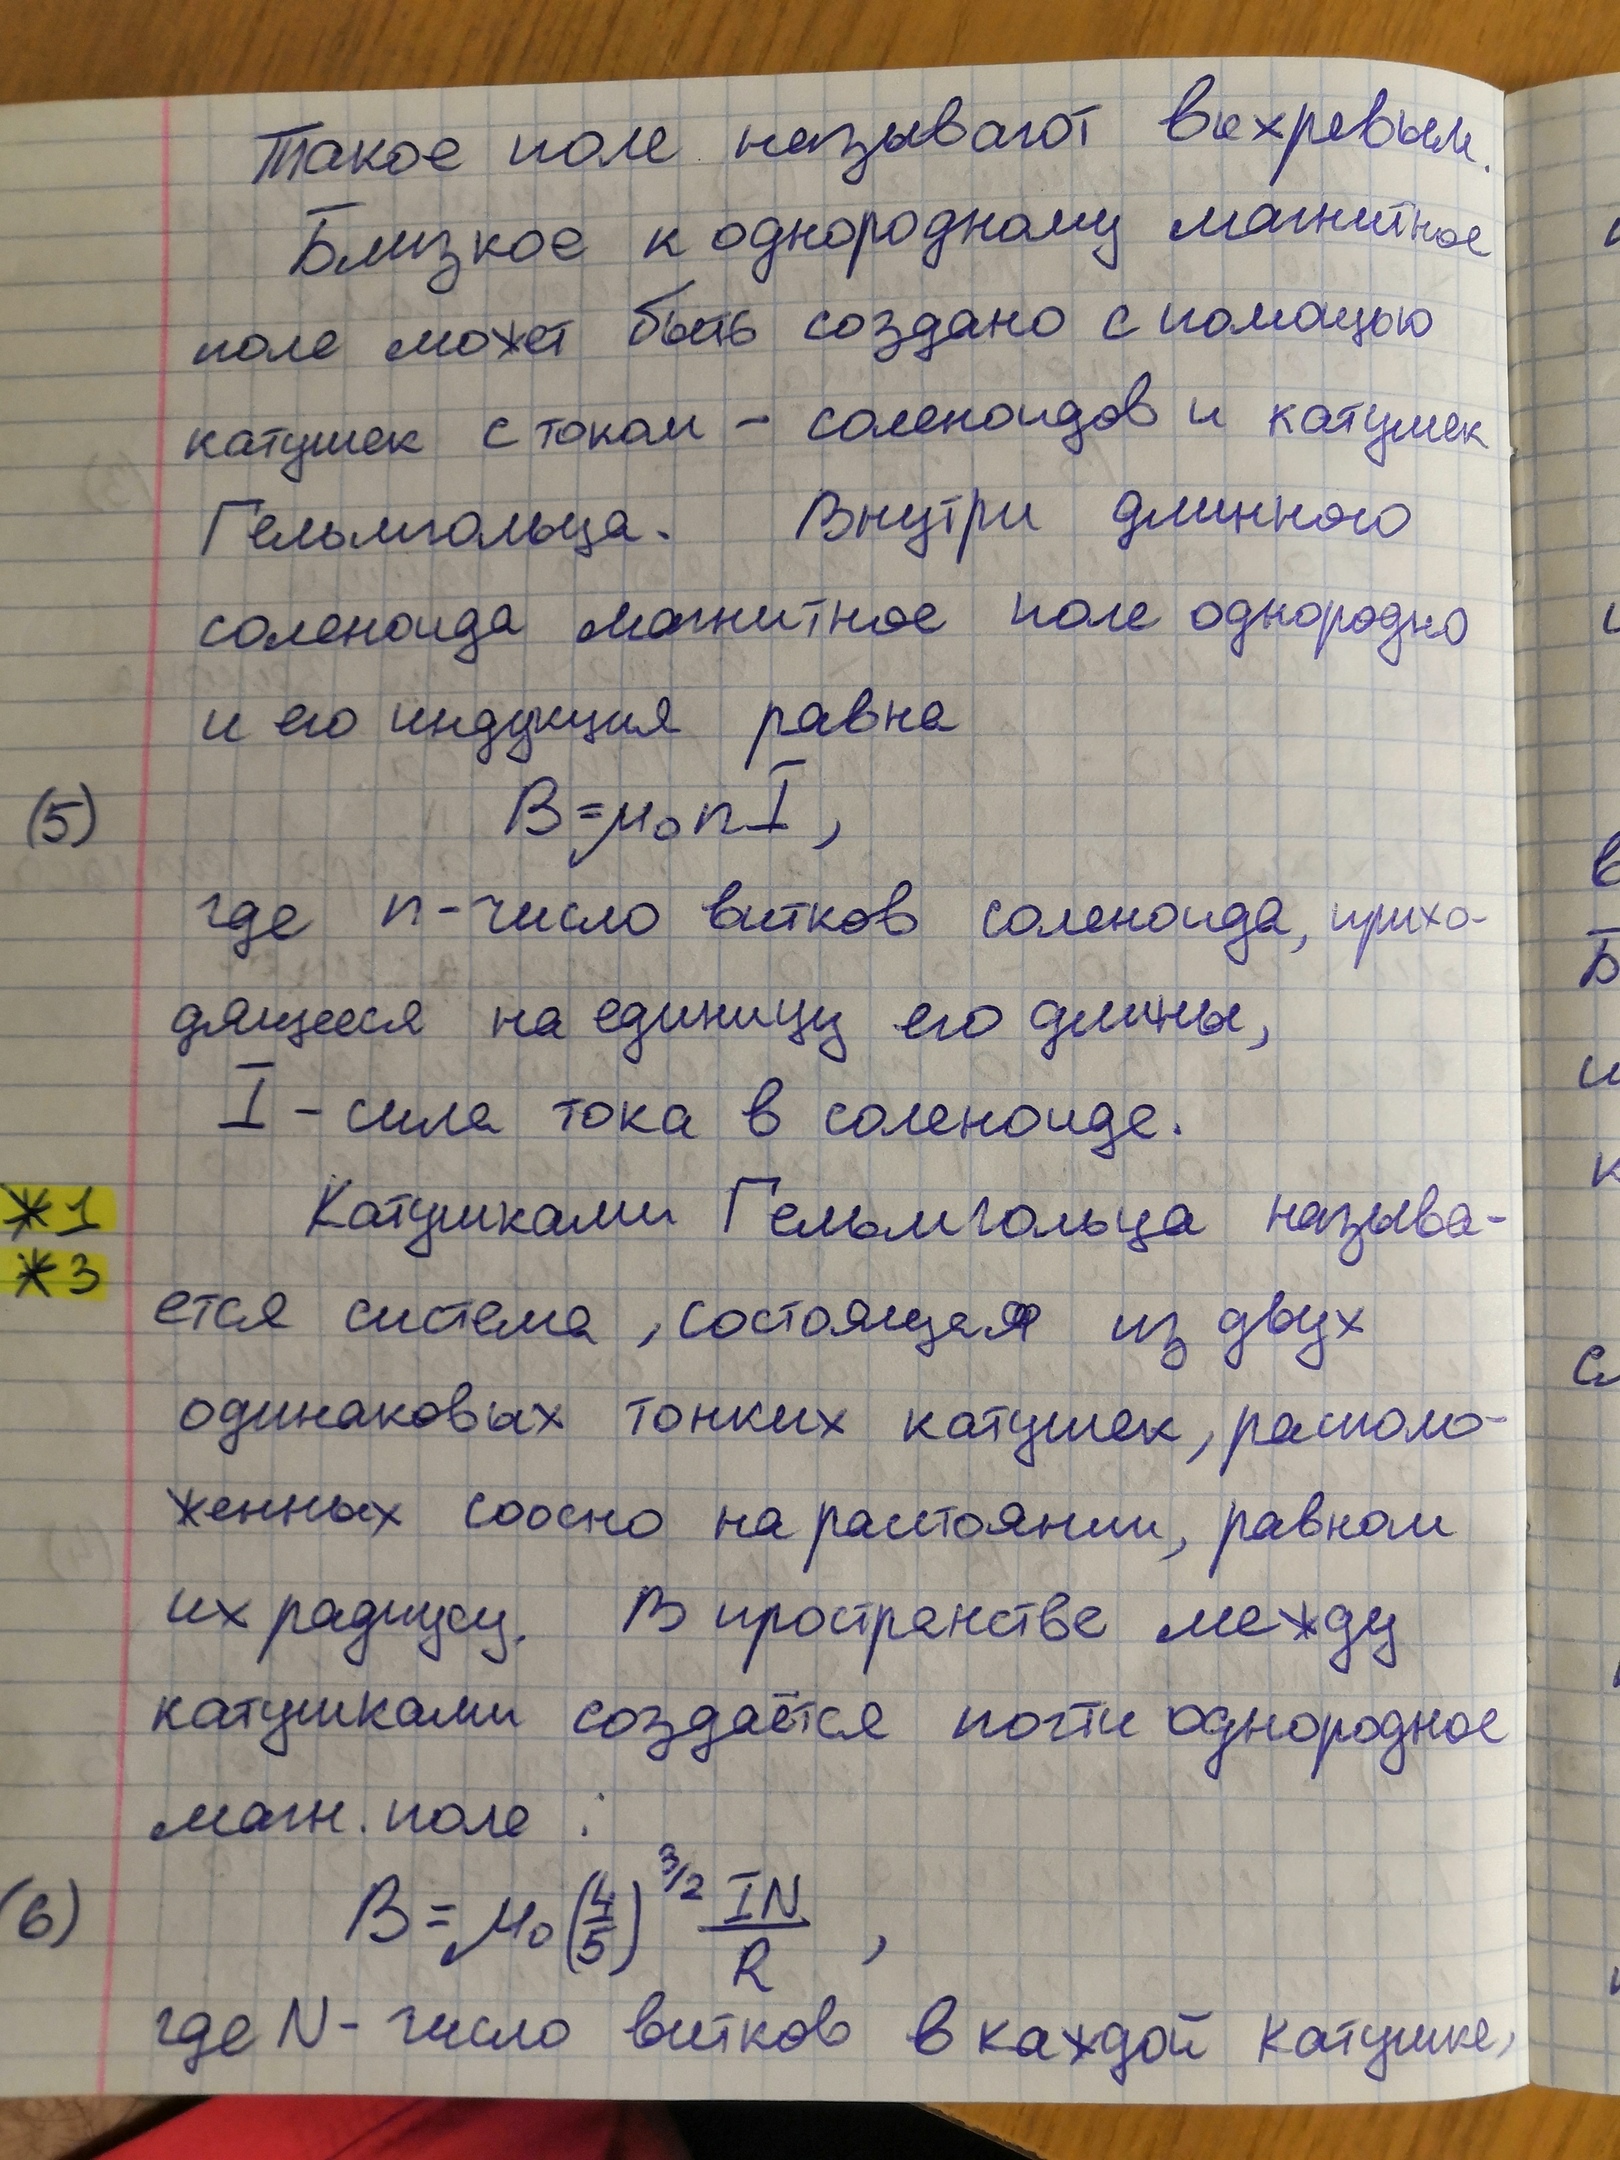 Такое поле называют вихревым.
Близкое к однородному магнитное
поле может быть создано с помощью
катушек с током – соленоидов и катушек
Гельмгольца. Внутри длинного
соленоида магнитное поле однородно
и его индукция равна
(5) B=μ₀nI,
где n-число витков соленоида, прихо-
дящееся на единицу его длины,
I – сила тока в соленоиде.
*1 Катушками Гельмгольца называ-
*3
ется система, состоящая из двух
одинаковых тонких катушек, располо-
женных соосно на расстоянии, равном
их радиусу. В пространстве между
катушками создаётся почти однородное
магн. поле :
(6) B=μ₀(4/5)^3/2 IN/R ,
где N- число витков в каждой катушке,